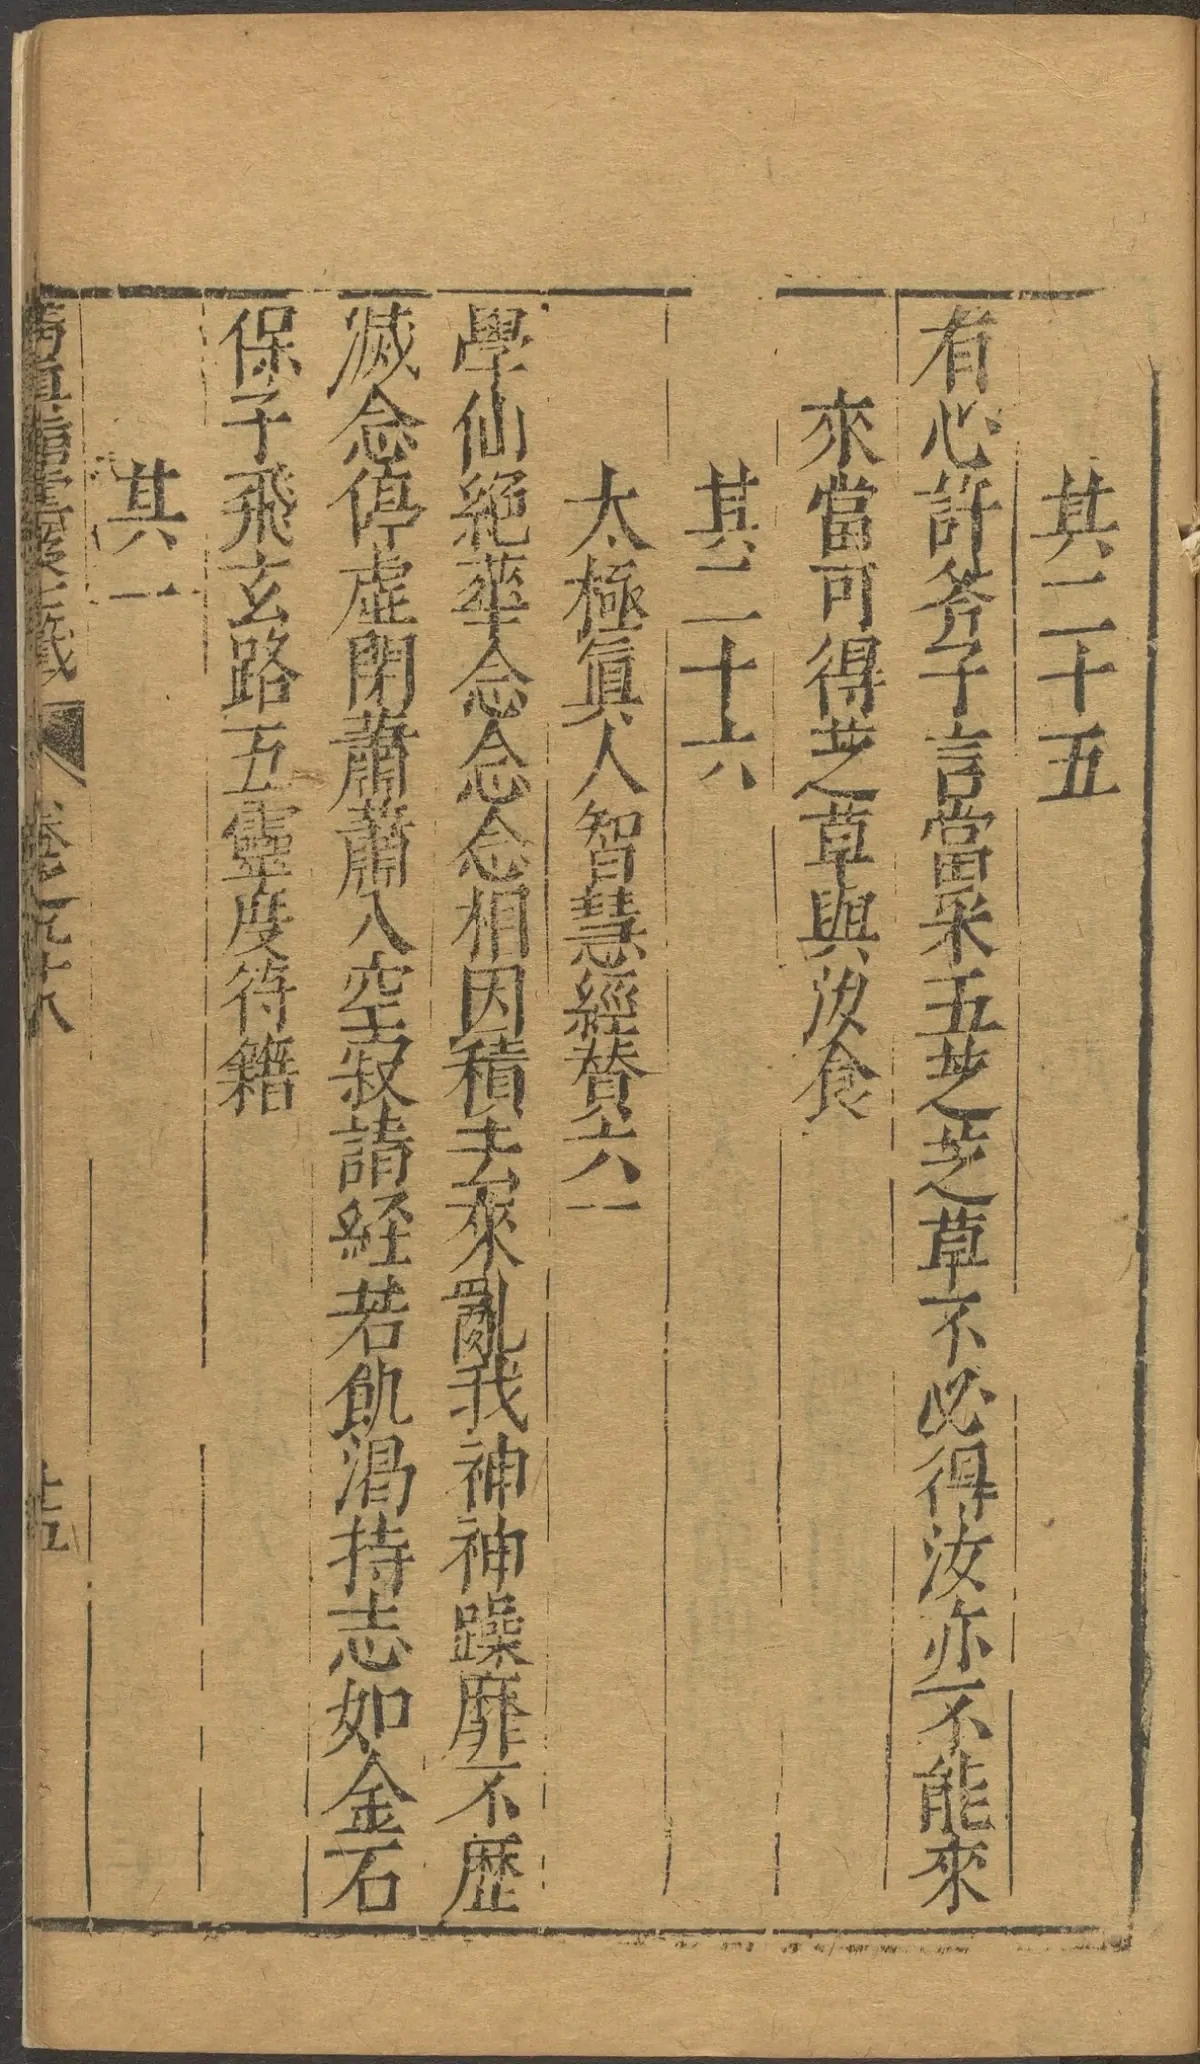 其二十五
有心許斧子言當采五芝芝草不必得汝亦不能來
來當可得芝草與汝食
其二十六
太極眞人智慧經賛六一
學仙絶華念念念相因積去來亂我神神躁靡不歴
滅念停虛閑蕭蕭入空寂請経若飢渴持志如金石
保子飛玄路五靈度符籍
其一